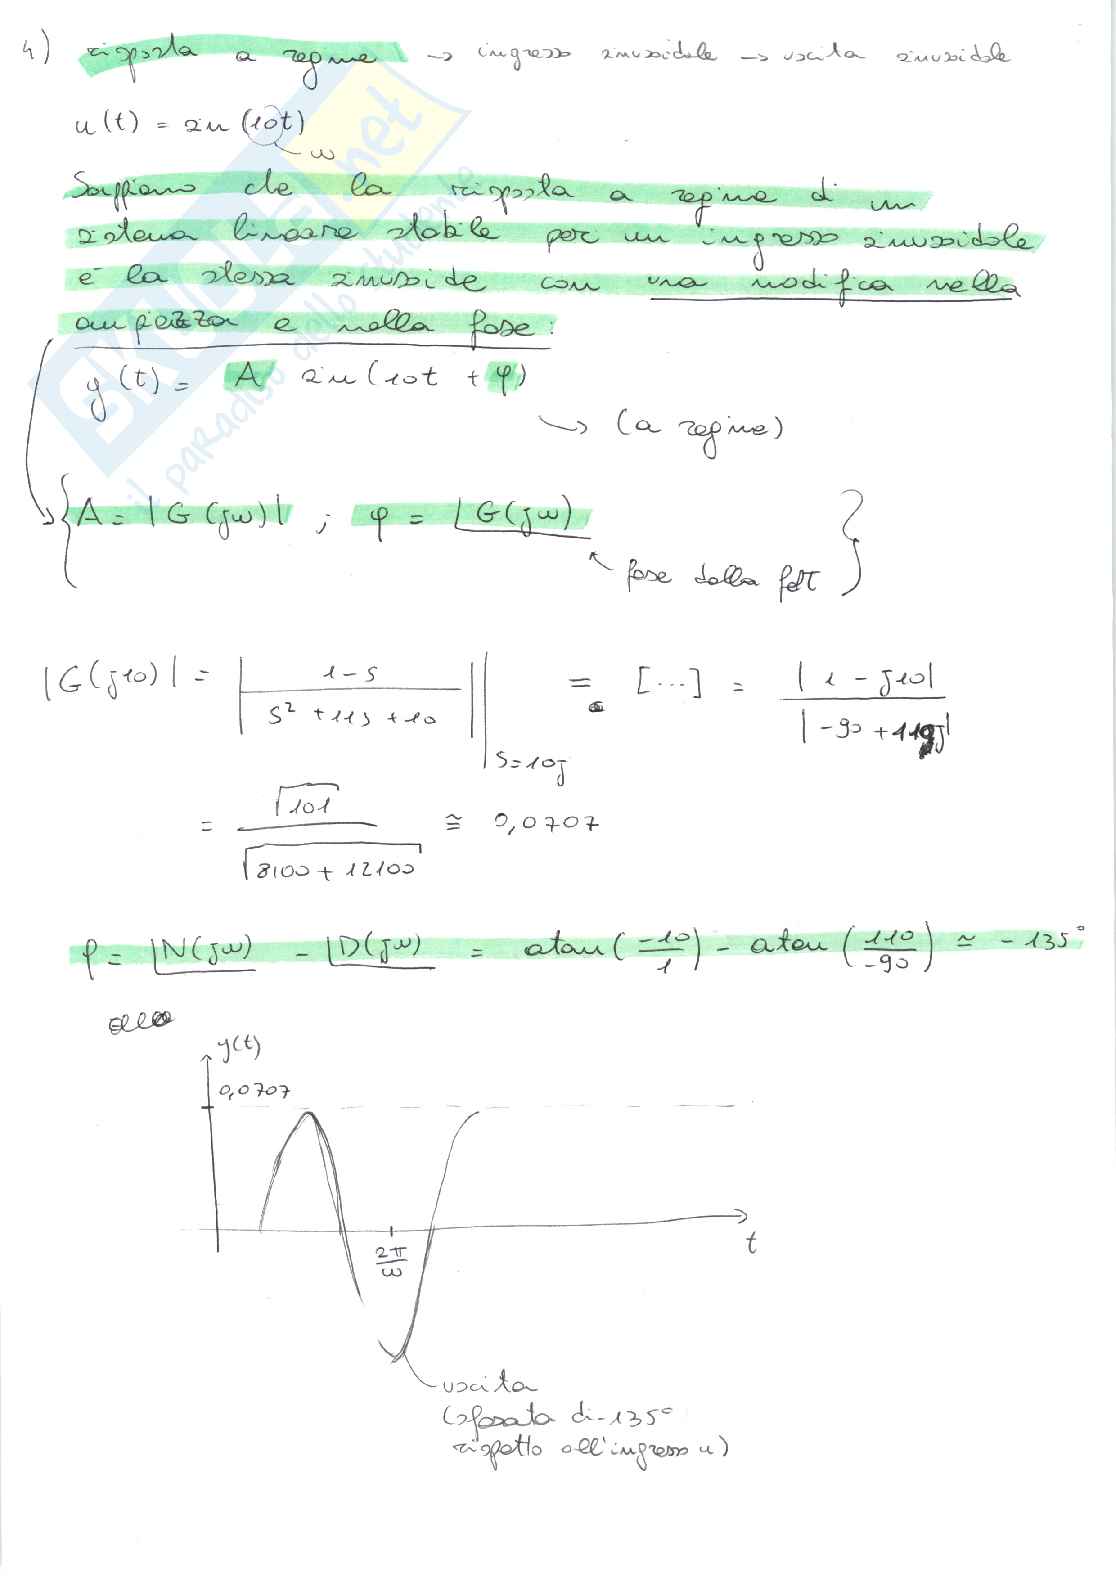 4) risposta a regime → ingresso sinusoidale → uscita sinusoidale
u(t) = sin (10t)
ω
Sappiamo che la risposta a regime di un
sistema lineare stabile per un ingresso sinusoidale
è la stessa sinusoide con una modifica nella
ampiezza e nella fase:
y(t) = A sin(10t + φ)
→ (a regime)
{ A = |G(jω)| ; φ = ∠G(jω) }
fase della fdt
|G(j10)| = | (1-s) / (s² + 11s + 10) | |s=10j = [...] = |1 - j10| / |-90 + 110j|
= √101 / √(8100 + 12100) ≅ 0,0707
φ = ∠N(jω) - ∠D(jω) = atan(-10/1) - atan(110/-90) ≃ -135°
y(t)
0,0707
2π/ω
t
uscita
(sfasata di -135°
rispetto all'ingresso u)
SKUOLA.net
il paradiso dello studente